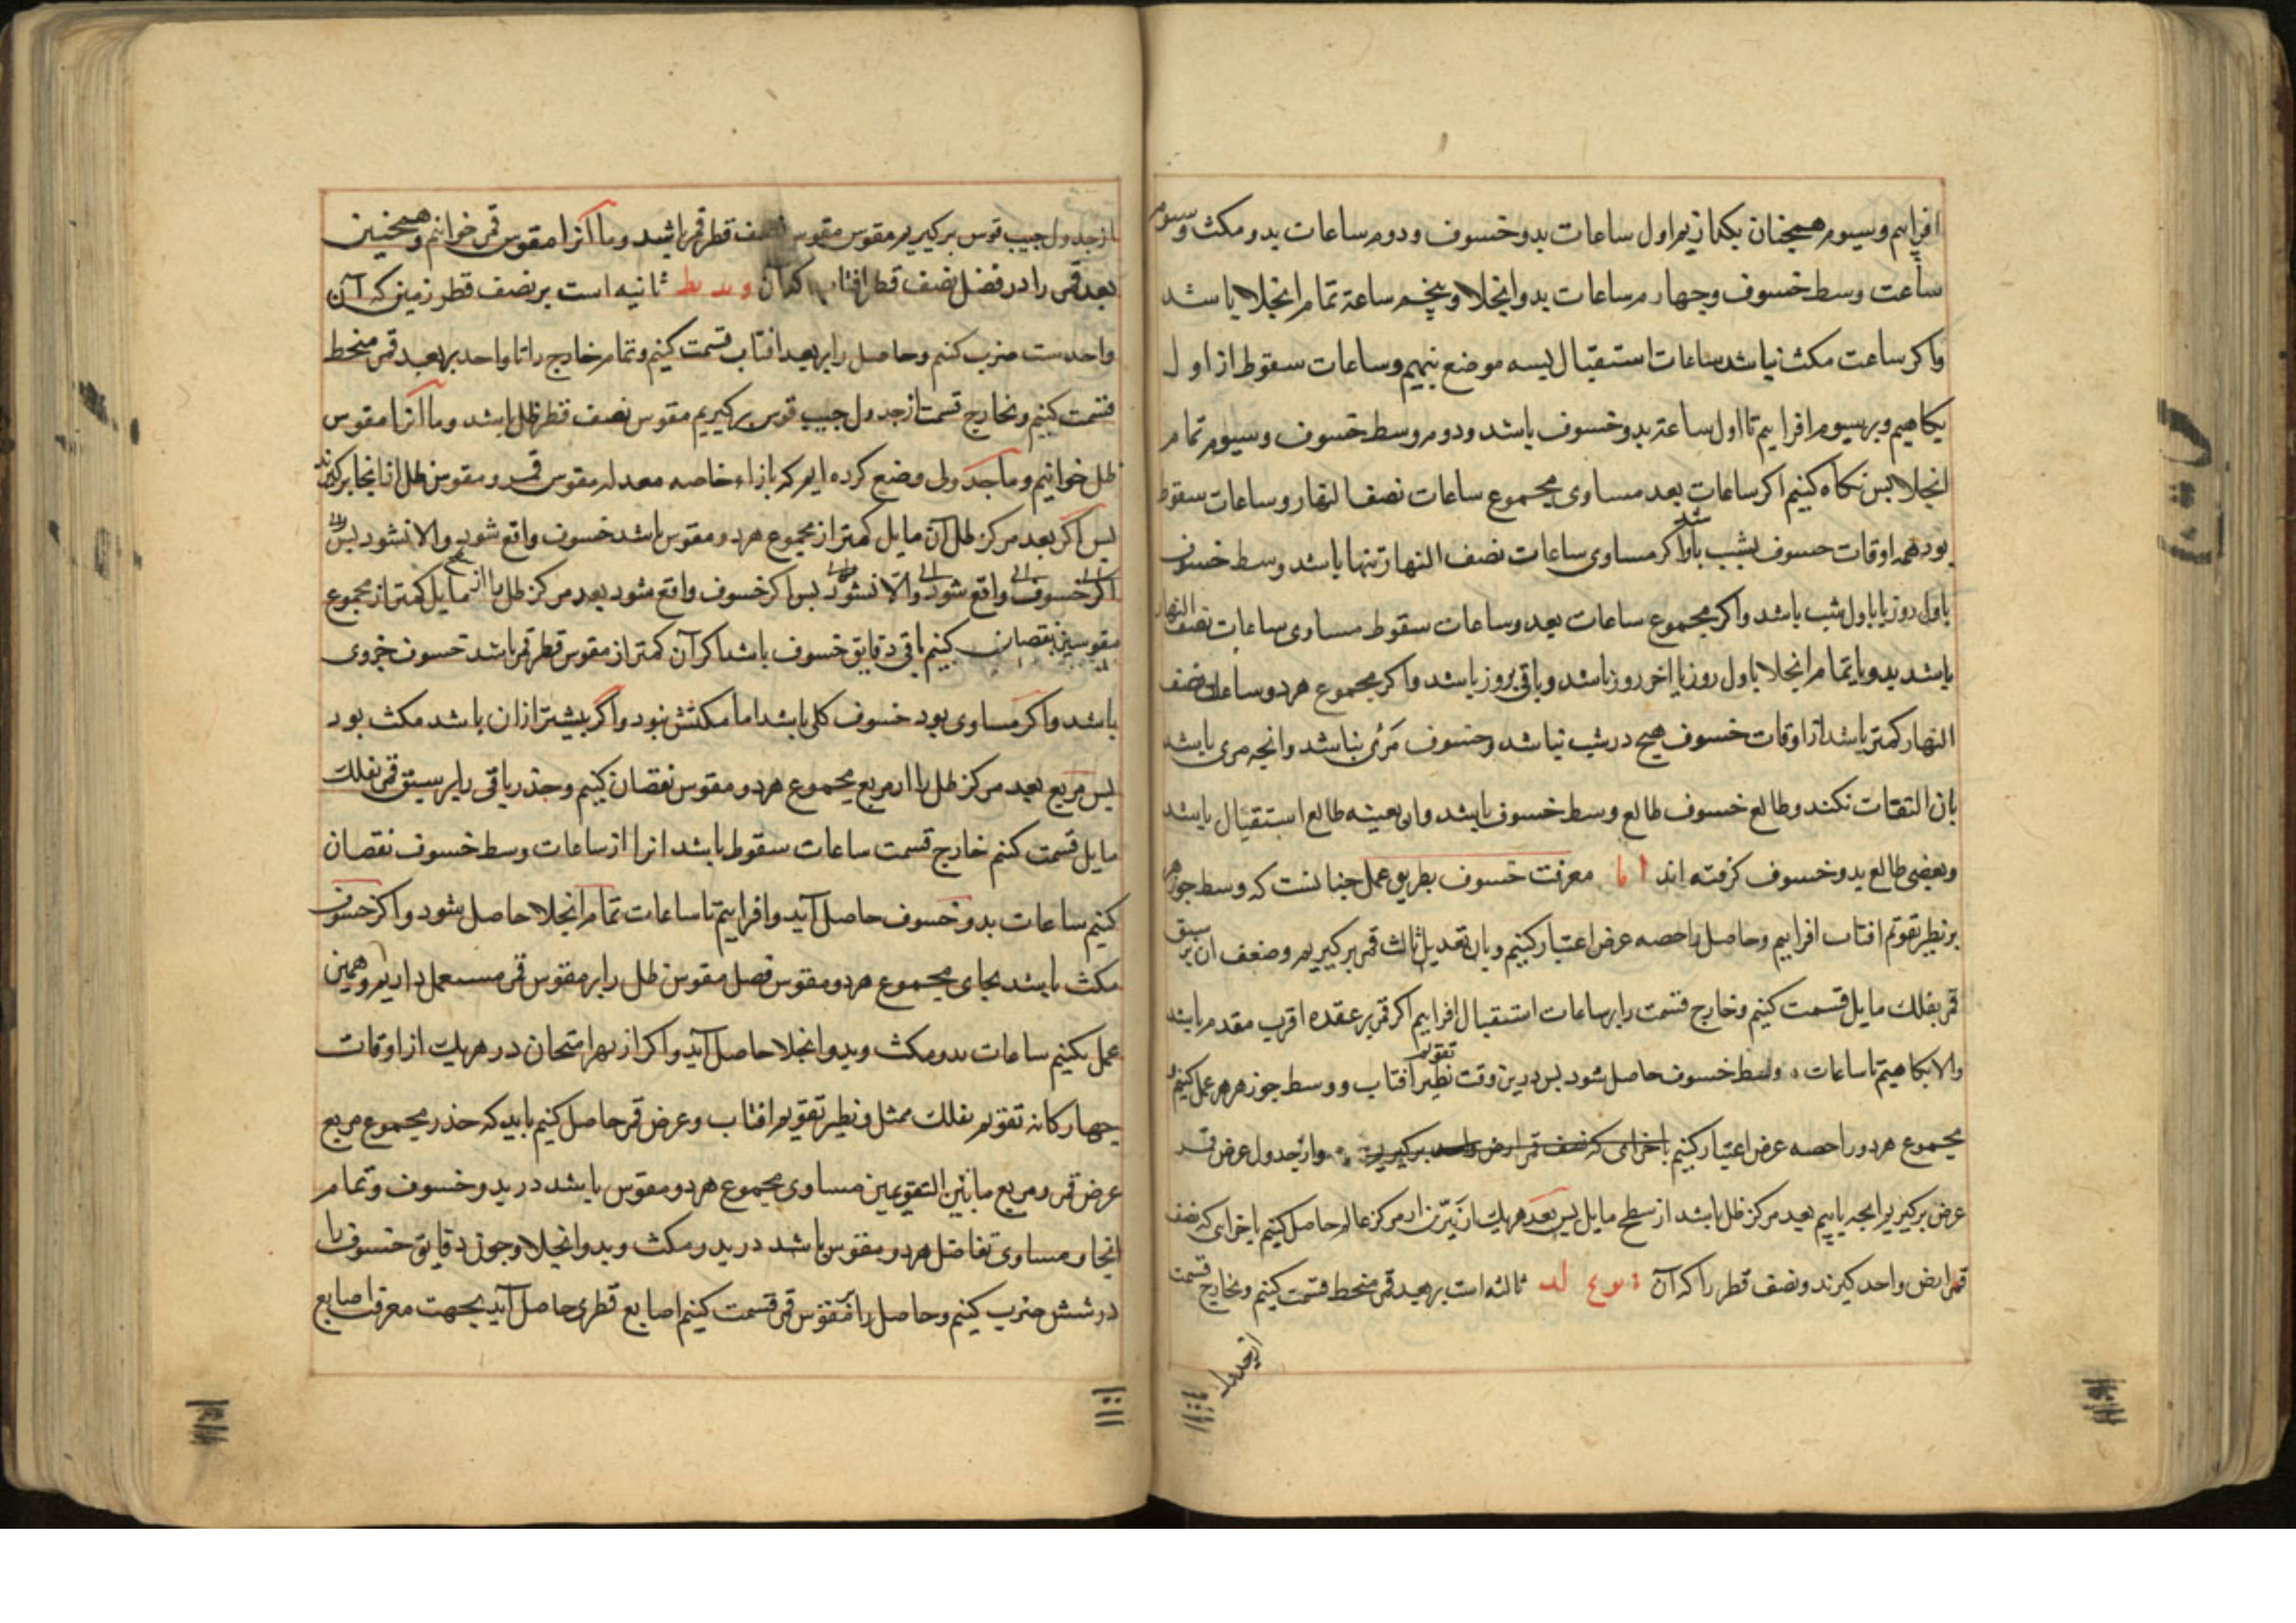 افزاییم و سیوم همچنان بگذاریم اول ساعات بدو خسوف و دوم ساعات بدو مکث و سیوم
ساعت وسط خسوف و چهارم ساعات بدو انجلا و پنجم ساعة تمام انجلا باشد
و اکر ساعت مکث نباشد ساعات استقبال بسه موضع بنهیم و ساعات سقوط از اول
بکاهیم و بر سیوم افزاییم تا اول ساعة بدو خسوف باشد و دوم وسط خسوف و سیوم تمام
انجلا پس نکاه کنیم اکر ساعات بعد مساوی مجموع ساعات نصف النهار و ساعات سقوط
بود همه اوقات خسوف بشب باشد و اکر مساوی ساعات نصف النهار تنها باشد وسط خسوف
باول روز یا باول شب باشد و اکر مجموع ساعات بعد و ساعات سقوط مساوی ساعات نصف النهار
باشد بدو یا تمام انجلا باول روز یا اخر روز باشد و باقی بروز باشد و اکر مجموع هر دو ساعات نصف
النهار کمتر باشد از اوقات خسوف هیچ در شب نباشد و خسوف مرئی نباشد و انچه مری باشد
بان التفات نکنند و طالع خسوف طالع وسط خسوف باشد و ان بعینه طالع استقبال باشد
و بعضی طالع بدو خسوف کرفته اند اما معرفت خسوف بطریق عمل چنانست که وسط جوزهر
بر نظیر تقویم افتاب افزاییم و حاصل را حصه عرض اعتبار کنیم و بان تعدیل ثالث قمر برکیریم و ضعف ان بر سبق
قمر بفلك مایل قسمت کنیم و خارج قسمت را بر ساعات استقبال افزاییم اکر قمر بر عقده اقرب مقدم باشد
و الا بکاهیم تا ساعات وسط خسوف حاصل شود پس درین وقت نظیر تقویم افتاب و وسط جوزهر هر عمل کنیم و
مجموع هر دو را حصه عرض اعتبار کنیم باخرای که نصف قمر ارض واحد برکیریم و از جدول عرض قمر
عرض برکیریم انچه یابیم بعد مرکز ظل باشد از سطح مایل پس بعد هر یك از نیرین از مرکز عالم حاصل کنیم باخرای که نصف
قمر ارض واحد کیرند و نصف قطر را که آن ثالثه است بر بعد قمر منحط قسمت کنیم و بخارج قسمت
از جدول
از جدول جیب قوس برکیریم مقوس مقوس نصف قطر قمر باشد و ما آنرا مقوس قمر خوانیم و همچنین
بعد قمر را در فضل نصف قطر افتاب که آن ثانیه است بر نصف قطر زمین که آن
واحدست ضرب کنیم و حاصل را بر بعد افتاب قسمت کنیم و تمام خارج را تا واحد بر بعد قمر منحط
قسمت کنیم و بخارج قسمت از جدول جیب قوس برکیریم مقوس نصف قطر ظل باشد و ما آنرا مقوس
ظل خوانیم و ما جدولی وضع کرده ایم که بازاء خاصه معدله مقوس قمر و مقوس ظل از انجا برکیرند
پس اکر بعد مرکز ظل آن مایل کمتر از مجموع هر دو مقوس باشد خسوف واقع شود و الا نشود پس
اکر خسوف واقع شود و الا نشود پس اکر خسوف واقع شود بعد مرکز ظل را از مایل کمتر از مجموع
مقوسین نقصان کنیم باقی دقایق خسوف باشد اکر آن کمتر از مقوس قطر قمر باشد خسوف جزوی
باشد و اکر مساوی بود خسوف کلی باشد اما مکثش نبود و اکر بیشتر از ان باشد مکث بود
پس مربع بعد مرکز ظل را از مربع مجموع هر دو مقوس نقصان کنیم و جذر باقی را بر سبق قمر بفلك
مایل قسمت کنیم خارج قسمت ساعات سقوط باشد انرا از ساعات وسط خسوف نقصان
کنیم ساعات بدو خسوف حاصل آید و افزاییم تا ساعات تمام انجلا حاصل شود و اکر خسوف
مکث باشد بجای مجموع هر دو مقوس فضل مقوس ظل را بر مقوس قمر مستعمل داریم و همین
عمل بکنیم ساعات بدو مکث و بدو انجلا حاصل آید و اکر از بهر امتحان در هر یك از اوقات
چهارکانه تقویم بفلك ممثل و نظیر تقویم افتاب و عرض قمر حاصل کنیم باید که جذر مجموع مربع
عرض قمر و مربع ما بین التقویمین مساوی مجموع هر دو مقوس باشد در بدو خسوف و تمام
انجلا و مساوی تفاضل هر دو مقوس باشد در بدو مکث و بدو انجلا و چون دقایق خسوف را
در شش ضرب کنیم و حاصل را بر مقوس قمر قسمت کنیم اصابع قطری حاصل آید بجهت معرفت اصابع